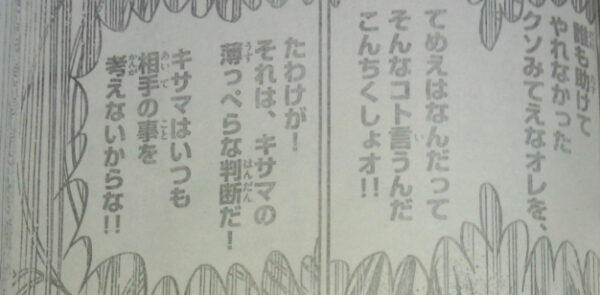 誰も助けて
やれなかった
クソみてえなオレを、
てめえはなんだって
そんなコト言うんだ
こんちくしょオ!!
たわけが!
それは、キサマの
薄っぺらな判断だ!
キサマはいつも
相手の事を
考えないからな!!